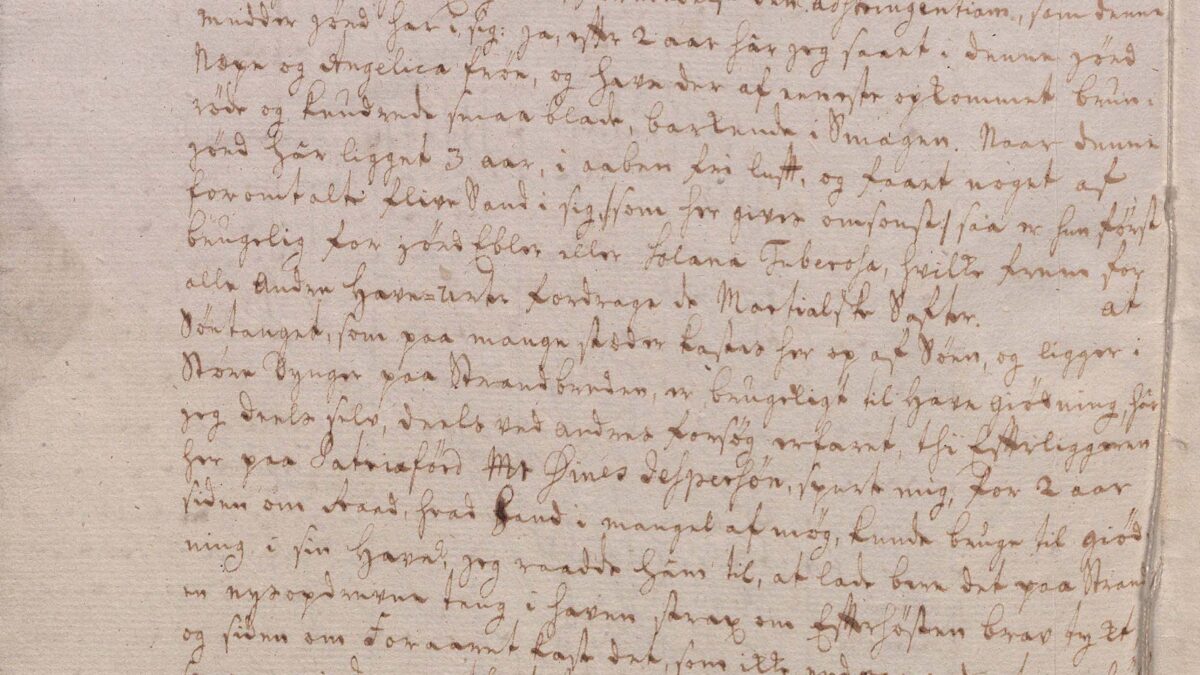 den adstringentiam, som denne
mudder jord har i sig: ja, efter 2 aar har jeg saaet i denne jord
Næpe og Angelica frøe, og have der af eeneste opkommet brun-
røde og krudrede smaa blade, barkende i Smagen. Naar denne
jord har ligget 3 aar, i aaben fri luft, og faaet noget af
foromtalte flive Sand i sig, /som her gives omsonst/ saa er hun først
brugelig for jordEbler eller Solana Tuberosa, hvilke frem for
alle andre Have-urter fordrage de Martialske Safter. at
Søetanget, som paa mange stæder kastes her op af Søen, og ligger i
Store Dynger paa Strandbreden, er brugeligt til Have giødning, har
jeg deels selv, deels ved andres forsøg, erfaret, thi Efterliggeren
her paa Patrixfiord Mr Jespersøn, spurte mig, for 2 aar
siden om Raad, hvad hand i mangel af møg, kunde bruge til giød-
ning i sin Have, jeg raadde ham til, at lade bere det paa Strand
en nysopdrevne tang i haven strax om Efterhøsten brav tykt
og siden om Foraaret kast det, som ikke